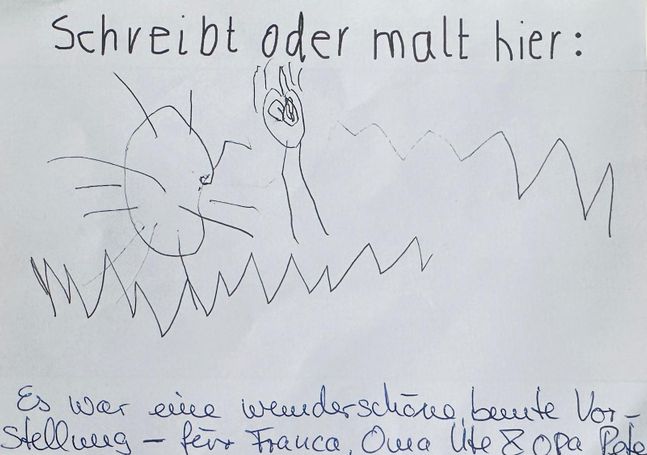 Schreibt oder malt hier:
Es war eine wunderschöne, bunte Vor-
stellung – für Franca, Oma Ute & Opa Pete